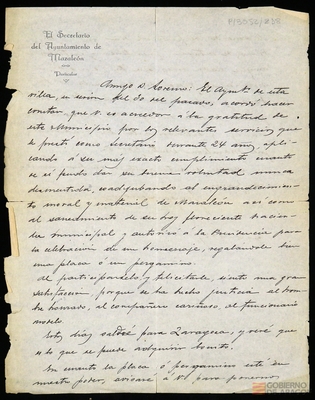 El Secretario
del Ayuntamiento de
Mazaleón
Particular
Amigo D. Lorenzo: El Aynto. de esta
villa, en sesión del 30 del pasado, acordó hacer
constar, que V. es acreedor a la gratitud de
este Municipio por los relevantes servicios que
le prestó como Secretario durante 24 años, apli-
cando a su más exacto cumplimiento cuanto
de si pudo dar su buena voluntad nunca
desmentida, coadyubando al engrandecimien-
to moral y material de Mazaleón así como
al saneamiento de su hoy floreciente hacien-
da municipal y autorizó a la Presidencia para
la celebración de un homenaje, regalándole bien
una placa ó un pergamino.
Al participárselo y felicitarle, siento una gran
satisfacción, porque se ha hecho justicia al hom-
bre honrado, al compañero cariñoso, al funcionario
modelo.
Estos días saldré para Zaragoza, y veré que
es lo que se puede adquirir bonito.
En cuanto la placa ó pergamino esté en
nuestro poder, avisaré a V. para ponernos
GOBIERNO
DE ARAGON